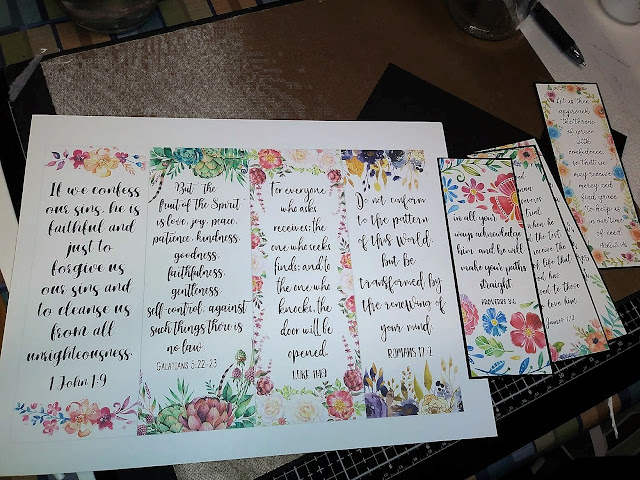 If we confess
our sins, he is
faithful and
just to
forgive us
our sins and
to cleanse us
from all
unrighteousness.
1 John 1:9
But the
fruit of the Spirit
is love, joy, peace,
patience, kindness,
goodness,
faithfulness,
gentleness,
self-control; against
such things there is
no law.
GALATIANS 5:22-23
For everyone
who asks
receives; the
one who seeks
finds; and to
the one who
knocks, the
door will be
opened.
LUKE 11:10
Do not conform
to the pattern
of this world,
but be
transformed by
the renewing of
your mind.
ROMANS 12:2
in all your
ways acknowledge
him, and he will
make your paths
straight.
PROVERBS 3:6
when he
the test
receive the
of life that
has
to those
love him
James 1:12
Let us then
approach
the throne
of grace
with
confidence,
so that we
may receive
mercy and
find grace
to help us
in our time
of need.